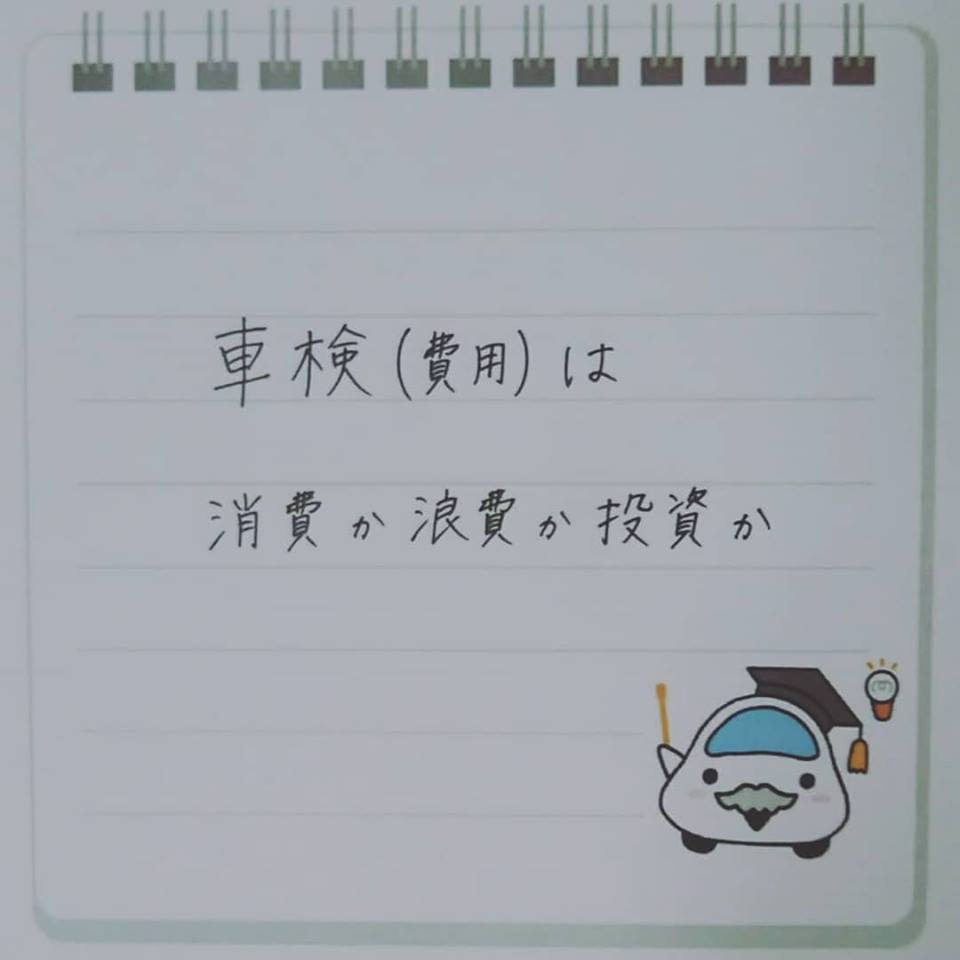 車検(費用)は
消費か浪費か投資か